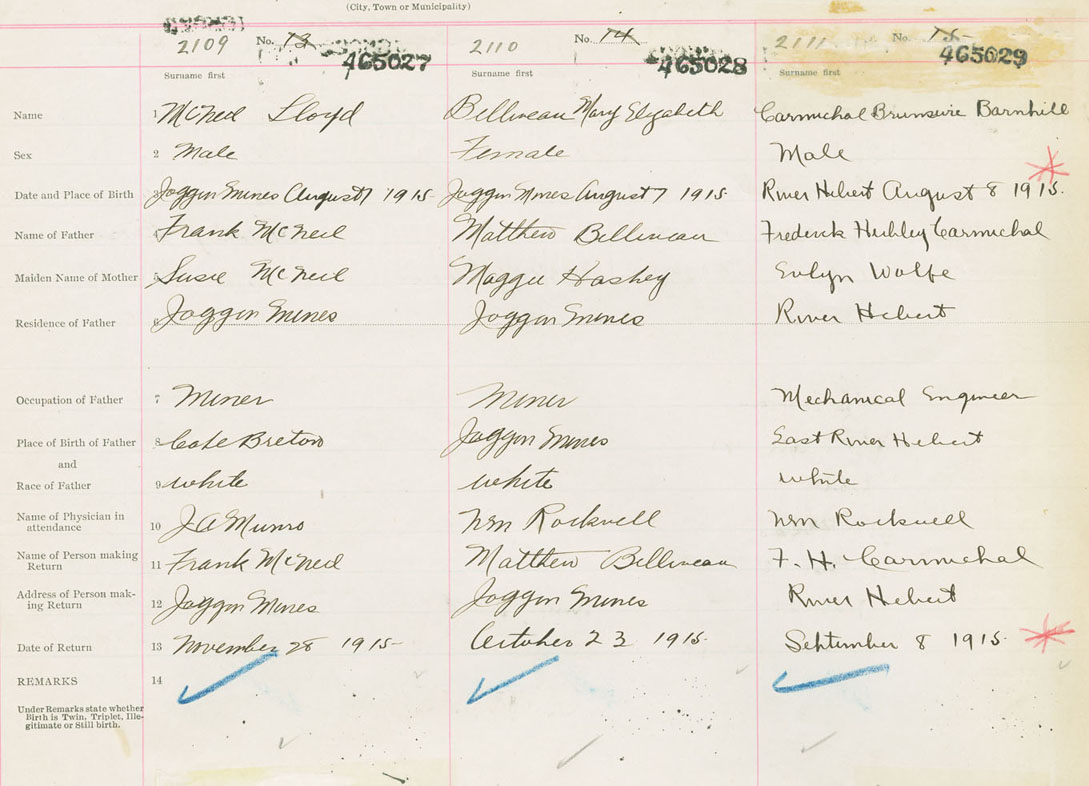 (City, Town or Municipality)
2109 No. 13 465027 2110 No. 14 465028 2111 No. 15 465029
Surname first Surname first Surname first
Name 1 McNeil Lloyd Belliveau Mary Elizabeth Carmichal Brunswire Barnhill
Sex 2 Male Female Male
Date and Place of Birth 3 Joggin Mines August 7 1915 Joggin Mines August 7 1915 River Hebert August 8 1915.
Name of Father 4 Frank McNeil Matthew Belliveau Frederick Hubley Carmichal
Maiden Name of Mother 5 Susie McNeil Maggie Haskey Evlyn Wolfe
Residence of Father 6 Joggin Mines Joggin Mines River Hebert
Occupation of Father 7 Miner Miner Mechanical Engineer
Place of Birth of Father 8 Cape Breton Joggin Mines East River Hebert
and
Race of Father 9 white white white
Name of Physician in
attendance 10 J A Munro Wm Rockwell Wm Rockwell
Name of Person making
Return 11 Frank McNeil Matthew Belliveau F. H. Carmichal
Address of Person mak-
ing Return 12 Joggin Mines Joggin Mines River Hebert
Date of Return 13 November 28 1915 October 23 1915 September 8 1915
REMARKS 14
Under Remarks state whether
Birth is Twin, Triplet, Ille-
gitimate or Still birth.